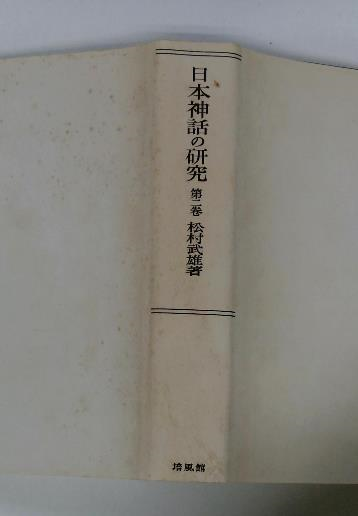 日本神話の研究 第二巻 松村武雄著
培風館